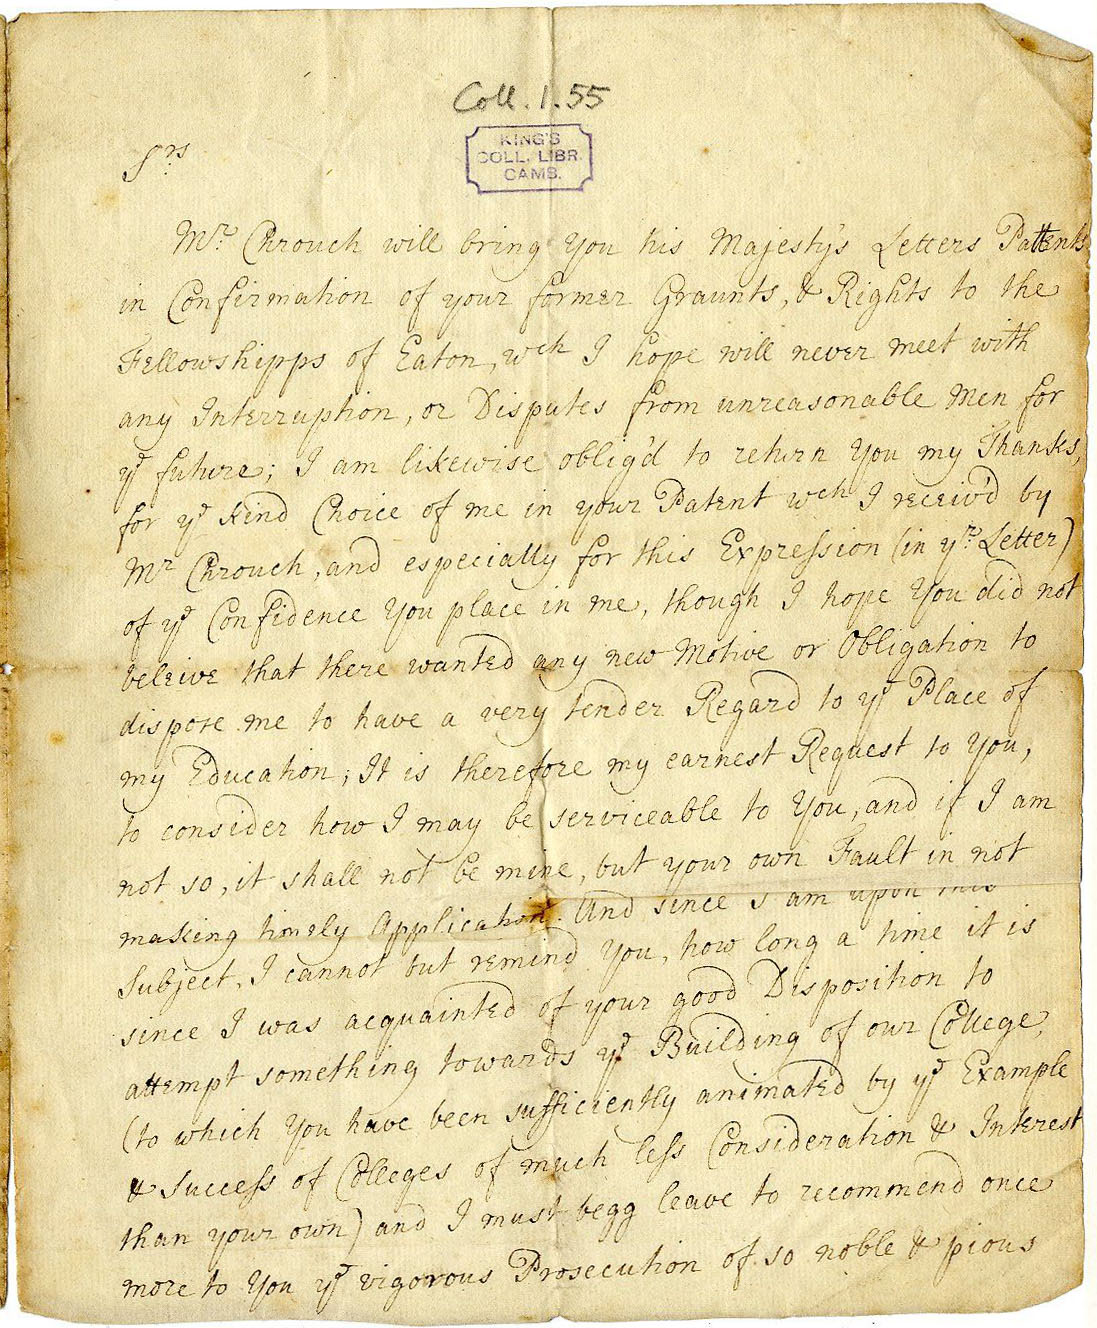 Coll. 1. 55
KING'S
COLL. LIBR.
CAMB.
Srs
Mr. Chrouch will bring You his Majesty's Letters Pattents
in Confirmation of your former Graunts, & Rights to the
Fellowshipps of Eaton, wch I hope will never meet with
any Interruption, or Disputes from unreasonable Men for
ye future; I am likewise oblig'd to return You my Thanks,
for ye kind Choice of me in your Patent wch I receiv'd by
Mr Chrouch, and especially for this Expression (in yr. Letter)
of ye Confidence You place in me, though I hope You did not
beleive that there wanted any new Motive or Obligation to
dispose me to have a very tender Regard to ye Place of
my Education; It is therefore my earnest Request to You,
to consider how I may be serviceable to You, and if I am
not so, it shall not be mine, but your own Fault in not
making timely Application. And since I am upon this
Subject, I cannot but remind You, how long a time it is
since I was acquainted of your good Disposition to
attempt something towards ye Building of our College,
(to which You have been sufficiently animated by ye Example
& Success of Colleges of much less Consideration & Interest
than your own) and I must begg leave to recommend once
more to You ye vigorous Prosecution of so noble & pious